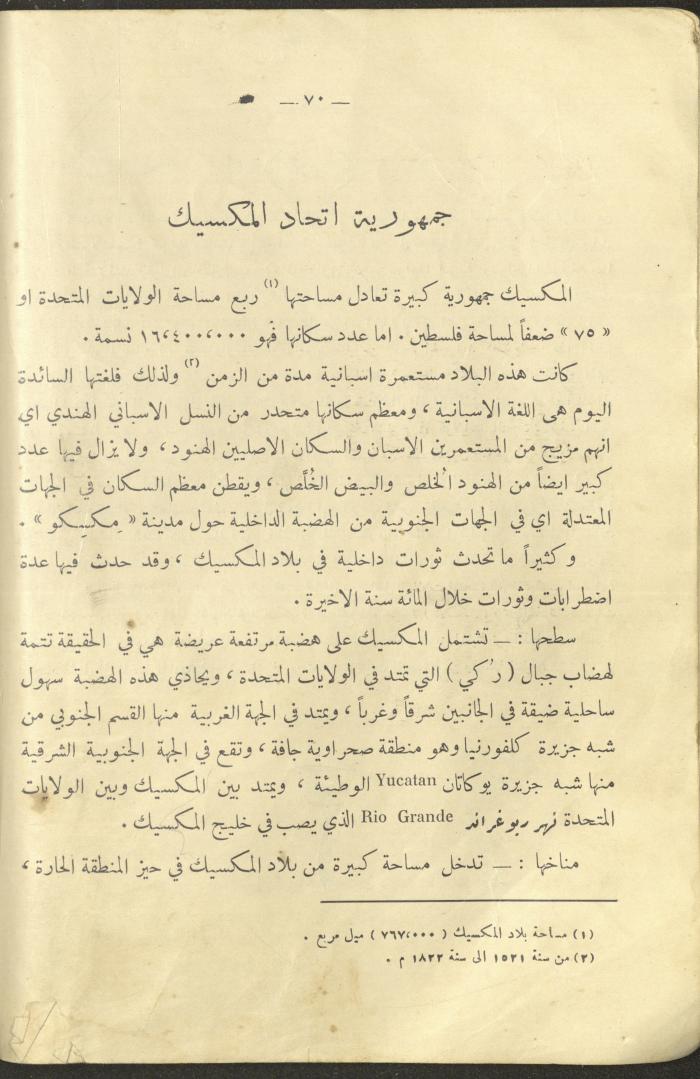 — ٧٠ —
جمهورية اتحاد المكسيك
المكسيك جمهورية كبيرة تعادل مساحتها (١) ربع مساحة الولايات المتحدة او
« ٧٥ » ضعفاً لمساحة فلسطين . اما عدد سكانها فهو ١٦،٤٠٠،٠٠٠ نسمة .
كانت هذه البلاد مستعمرة اسبانية مدة من الزمن (٢) ولذلك فلغتها السائدة
اليوم هى اللغة الاسبانية ، ومعظم سكانها متحدر من النسل الاسباني الهندي اي
انهم مزيج من المستعمرين الاسبان والسكان الاصليين الهنود ، ولا يزال فيها عدد
كبير ايضاً من الهنود الخلص والبيض الخُلَّص ، ويقطن معظم السكان في الجهات
المعتدلة اي في الجهات الجنوبية من الهضبة الداخلية حول مدينة « مِكسِكو » .
وكثيراً ما تحدث ثورات داخلية في بلاد المكسيك ، وقد حدث فيها عدة
اضطرابات وثورات خلال المائة سنة الاخيرة .
سطحها : — تشتمل المكسيك على هضبة مرتفعة عريضة هي في الحقيقة تتمة
لهضاب جبال ( رُكي ) التي تمتد في الولايات المتحدة ، ويحاذي هذه الهضبة سهول
ساحلية ضيقة في الجانبين شرقاً وغرباً ، ويمتد في الجهة الغربية منها القسم الجنوبي من
شبه جزيرة كلفورنيا وهو منطقة صحراوية جافة ، وتقع في الجهة الجنوبية الشرقية
منها شبه جزيرة يوكاتان Yucatan الوطيئة ، ويمتد بين المكسيك وبين الولايات
المتحدة نهر ريوغراند Rio Grande الذي يصب في خليج المكسيك .
مناخها : — تدخل مساحة كبيرة من بلاد المكسيك في حيز المنطقة الحارة ،
(١) مساحة بلاد المكسيك ( ٧٦٧،٠٠٠ ) ميل مربع .
(٢) من سنة ١٥٢١ الى سنة ١٨٢٢ م .